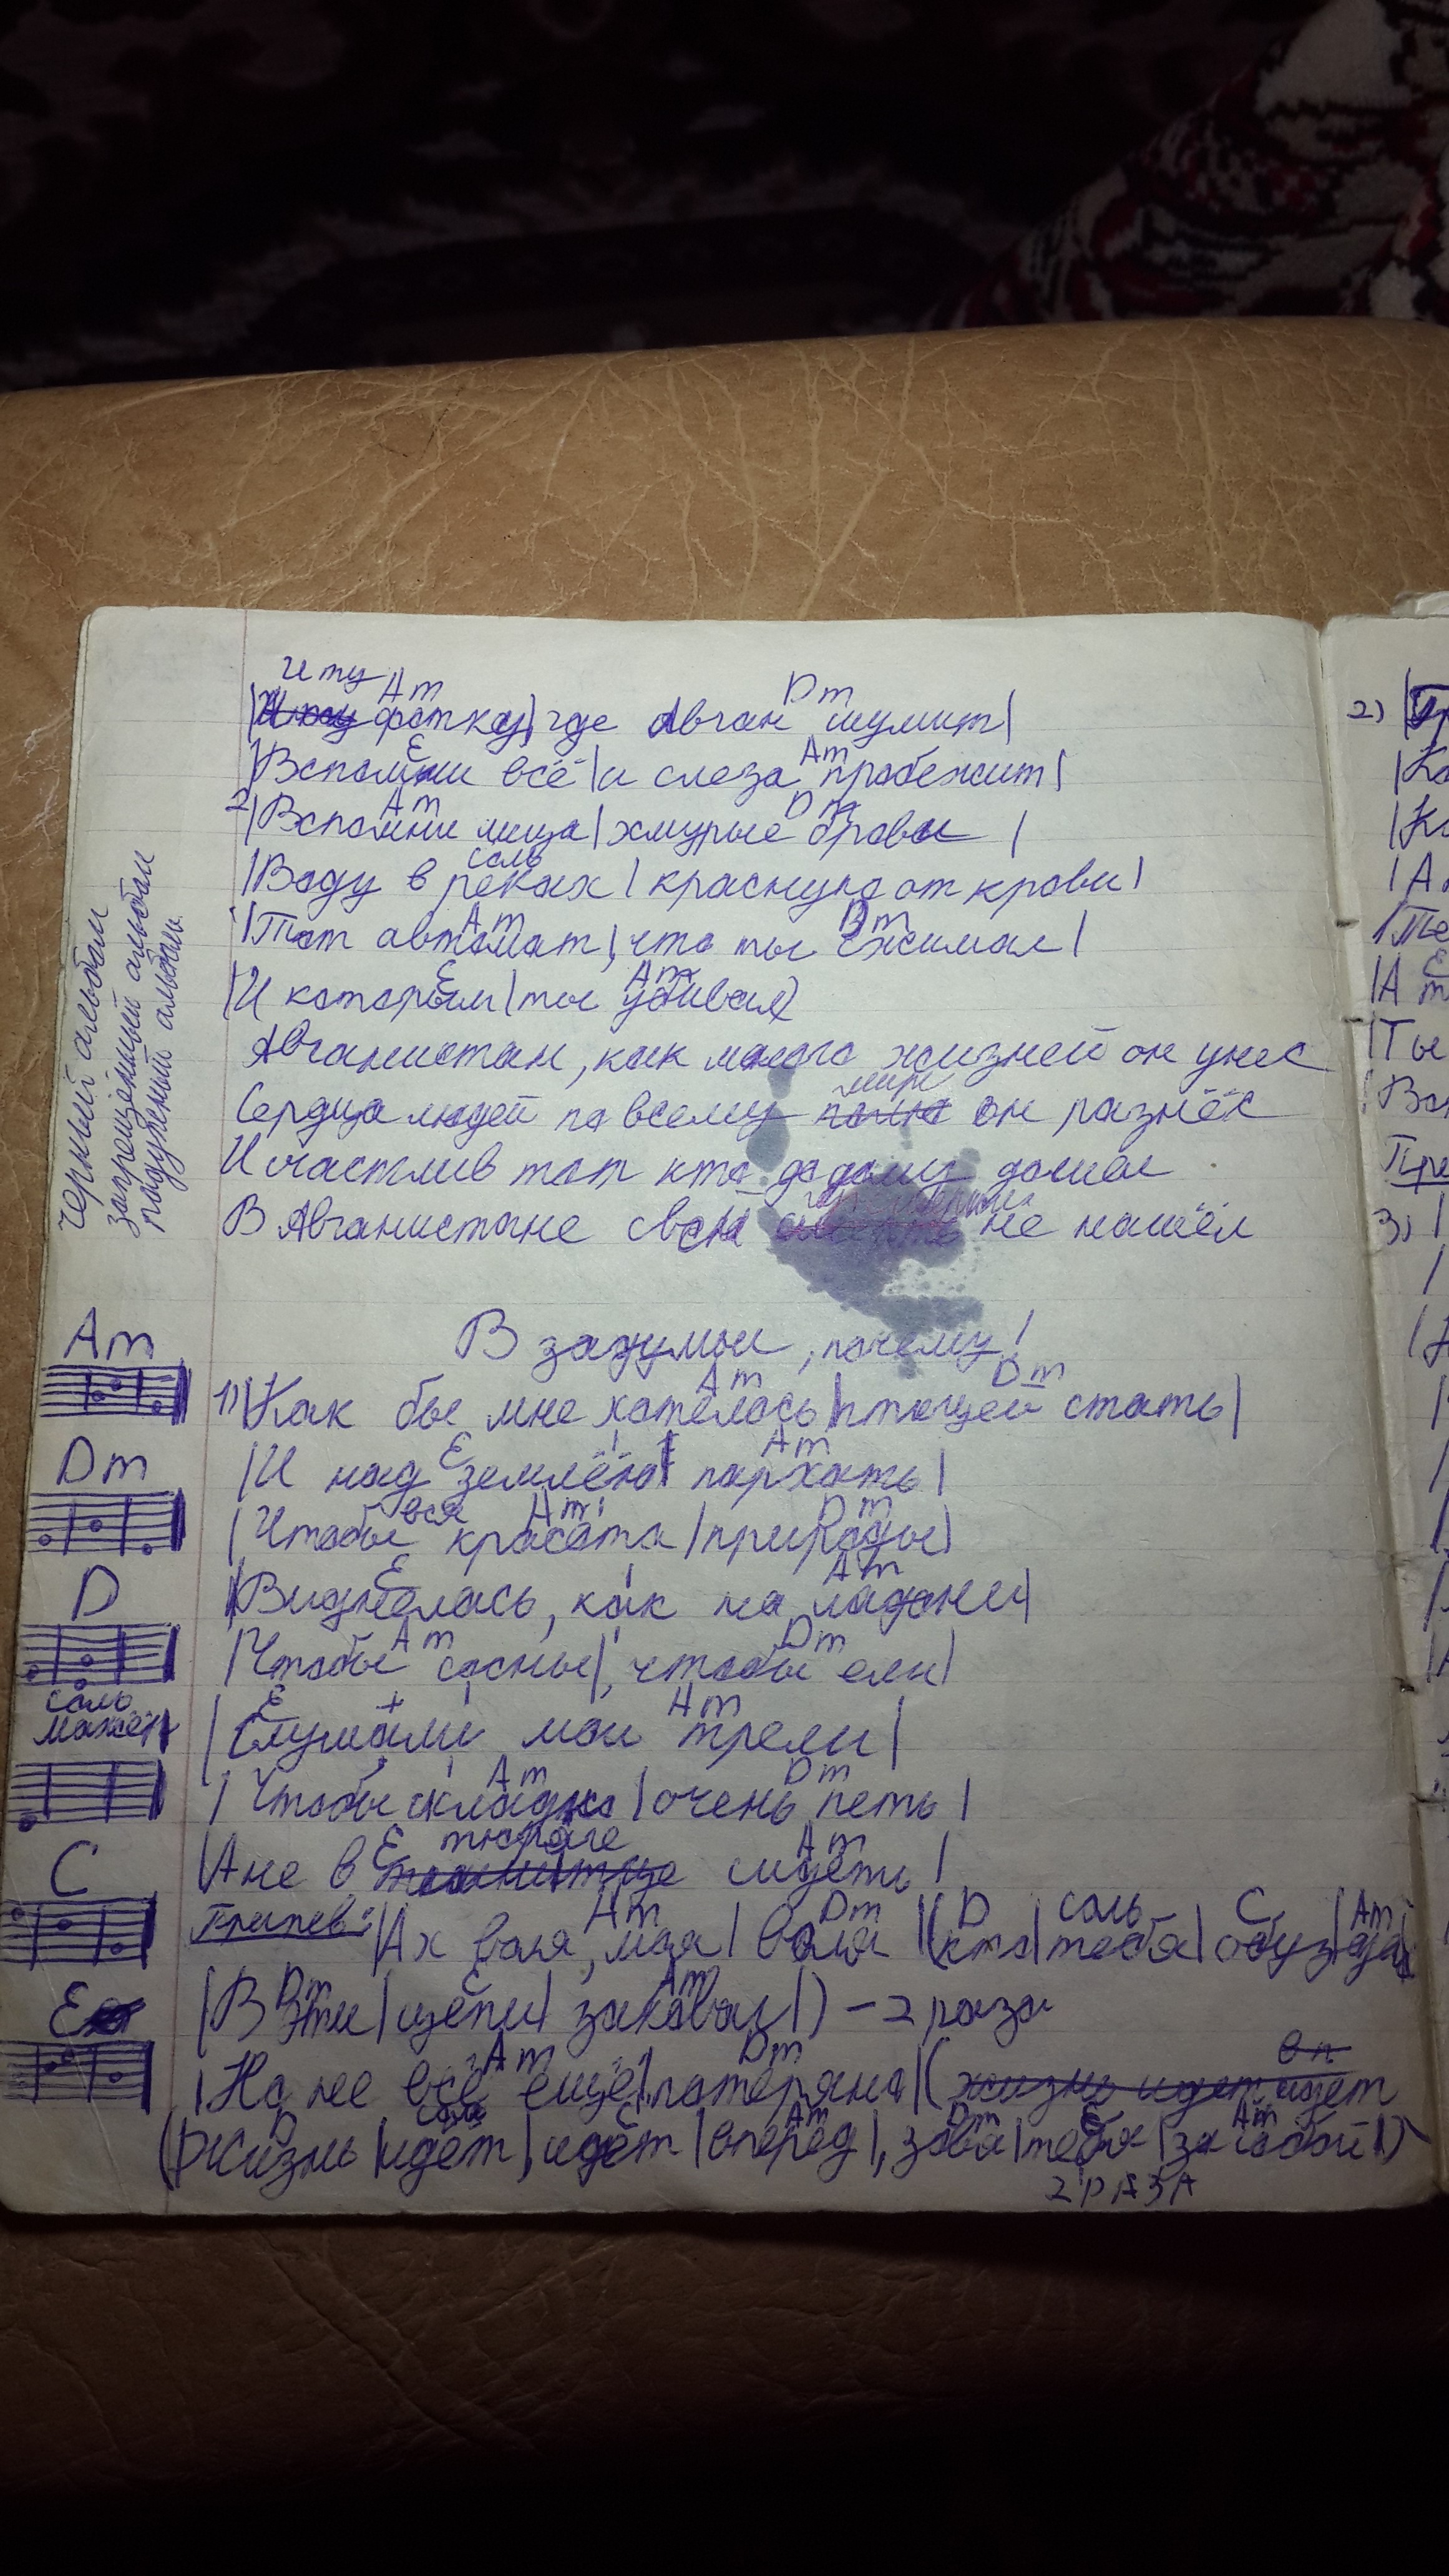 И ту
Am Dm
фотку, где Авган шумит
E Am
Вспомни всё и слеза пробежит
Am Dm
2) Вспомни лица хмурые брови
соль
Воду в реках красную от крови
Am Dm
Тот автомат, что ты сжимал
E Am
И которым ты убивал
Авганистан, как много жизней он унес
мир
Сердца людей по всему полю он разнёс
И счастлив тот кто до дому дошел
В Авганистане свой не нашёл
Черный альбом
запрещённый альбом
В задумои, почему!
Am Dm
1) Как бы мне хотелось птицей стать
E Am
И над землёю порхать
вся Am Dm
Чтобы красота природы
E Am
Виднелась, как на ладони
Am Dm
Чтобы сосны, чтобы ели
E Am
Слушали мои трели
Am Dm
Чтобы складно очень петь
E тюряге Am
А не в темнице сидеть
Am Dm D соль C Am
Припев: Ах воля, моя воля (кто тебя обуздал
Dm E Am
В эти цепи заковал) - 2 раза
Am Dm вп
Но не всё ещё потеряно (жизнь идет идет
D соль C Am Dm E Am
(Жизнь идёт, идёт вперёд, зовя тебя за собой)
2 РАЗА
Am
Dm
D
соль
мажёр
C
E
2)
А
Ты
3)